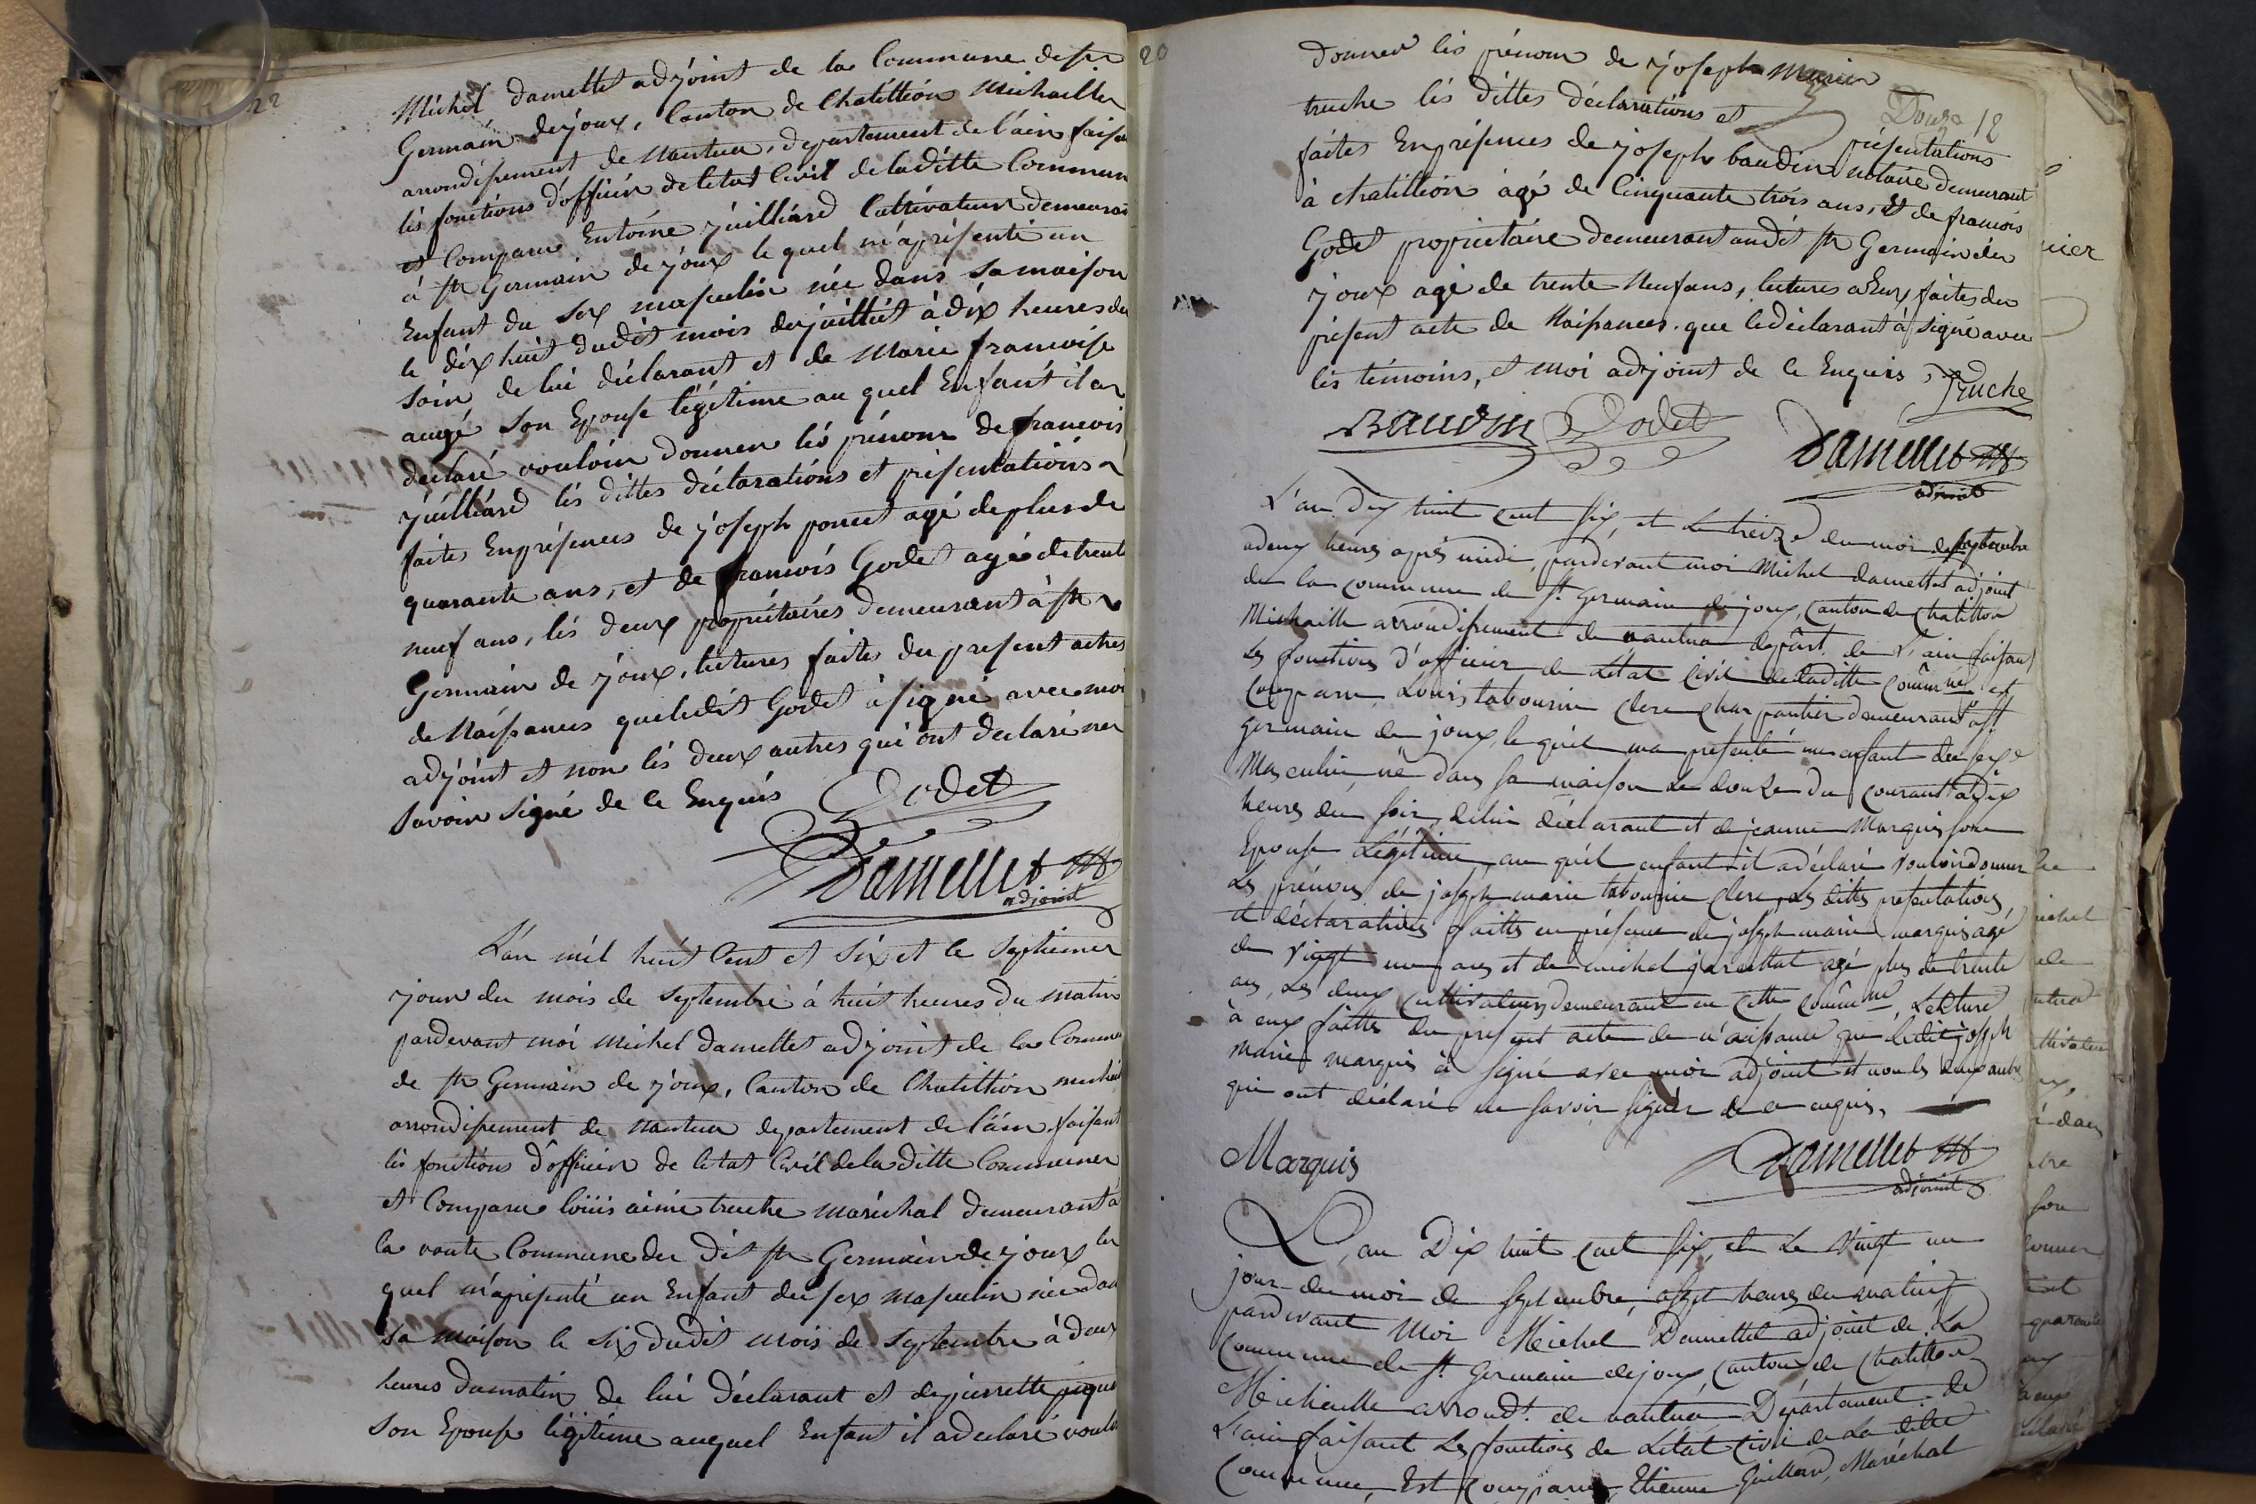 22
Michel damettet adjoint de la Commune de st
Germain dejoux, Canton de Chatillion Michaille
arrondissement de Nantua, departement de l'ain faisa
lés fonctions d'officiér de letat Civil de laditte Commun
et Comparu Entoine juilliard Cultivateur demeuran
à st Germain de joux le quel m'a présenté un
Enfant du Sex masculin née dans sa maison
le dix huit dudit mois dejuilliet à dix heures du
soir de lui déclarant et de Marie francoise
augé son Epouse légitime au quel Enfant il a
declaré vouloir donner lés prénom de francois
juilliard lés dittes déclarations et présentations
faites En présences de joseph poncet agé de plus de
quarante ans, et de francois Godet agé de trente
neuf ans, lés deux propriétaires demeurant à st
Germain de joux, lectures faites du present actes
de Naissances que ledit Godet à signé avec moi
adjoint et non lés deux autres qui ont declaré ne
savoir signé de ce Enquis Godet
Damettet
adjoint
L'an mil huit Cent et six et le septieme
jour du mois de septembre à huit heures du matin
pardevant moi michel damettet adjoint de la Commu
de st Germain de joux, Canton de Chatillion
arrondissement de Nantua departement de l'ain faisant
lés fonctions d'officier de letat Civil de la ditte Commune
et Comparu louis aimé truche maréchal demeurant à
la voute Commune du dit st Germain de joux le
quel m'a présenté un Enfant du sex masculin née dan
sa maison le six dudit mois de septembre à deux
heures du matin de lui déclarant et de pierrette
son Epouse légitime auquel Enfant il a declaré voulo
20
donner lés prénom de joseph Marie
Douze 12
truche lés dittes déclarations et présentations
faites En présences de joseph baudin notaire demeurant
à chatillion agé de Cinquante trois ans, Et de francois
Godet propriétaire demeurant audit st Germain de
joux agé de trente Neuf ans, lectures a Eux faites du
présent acte de Naissances que le déclarant à signé avec
lés témoins, et moi adjoint de ce Enquis, Truche
Baudin Godet Damettet
adjoint
L'an dix huit cent six, et le treize du moi de septembre
a deux heures après midi, pardevant moi Michel damettet adjoint
de la commune de st germain de joux, canton de chatillon
Michaille arrondissement de nantua depart. de L'ain faisant
les fonctions d'officier de Létat civil de laditte commune est
comparu Louis tabourin clerc charpantier demeurant a st
germain de joux, le quél ma présenté un enfant du sexe
Masculin né dans sa maison le douze du courant a dix
heures du soir, de lui déclarant et de jeanne Marquis son
Epouse Légitime, au quél enfant il a déclaré vouloir donner
les prénoms de joseph marie tabourin clerc, les dittes présentations
et déclarations faittes en présence de joseph marie marquis agé
de vingt un ans et de michel agé plus de trente
ans, les deux cultivateurs demeurant en cette commune, Lecture
à eux faitte du présent acte de naissance que ledit joseph
marie marquis à signé avec moi adjoint et non les deux autres
qui ont déclaré ne savoir signér de ce enquis,
Marquis Damettet
adjoint
L'an Dix huit cent six, et Le vingt un
jour du moi de septembre, a sept heures du matin
pardevant Moi Michel Damettet adjoint de La
commune de st germain de joux, canton de chatillon
Michaille arrondt. de nantua Département de
L'ain faisant Les fonctions de Létat civil de La ditte
commune, Est comparu Etienne Guillard, Maréchal